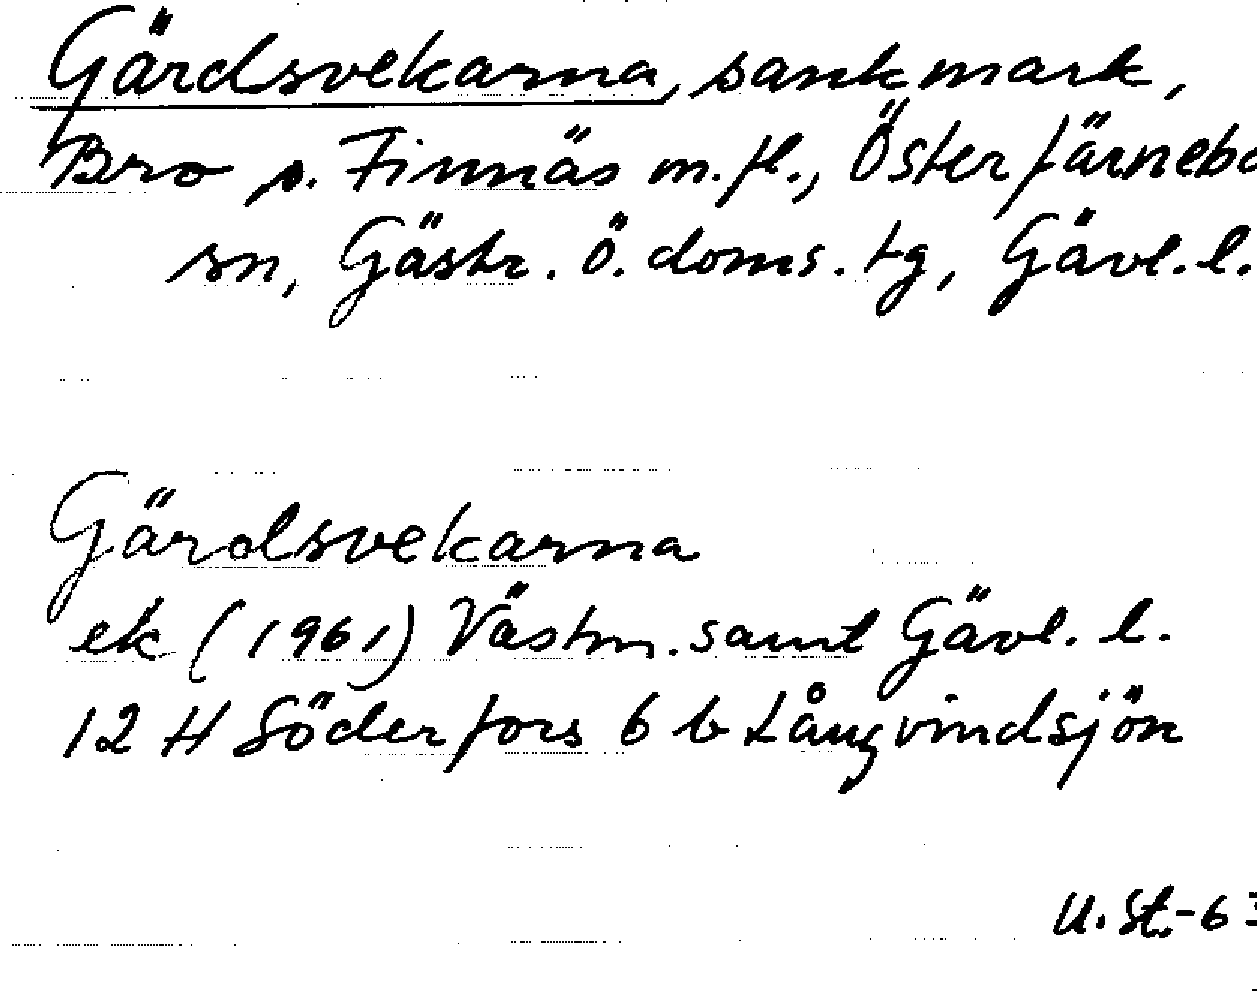 Gärdsvekarna, sankmark,
Bro p. Finnäs m.fl., Österfärnebo
sn, Gästr. ö. doms. tg, Gävl. l.
Gärdsvekarna
ek (1961) Västm. samt Gävl. l.
12 H Söderfors 6 b Långvindsjön
U. St-63